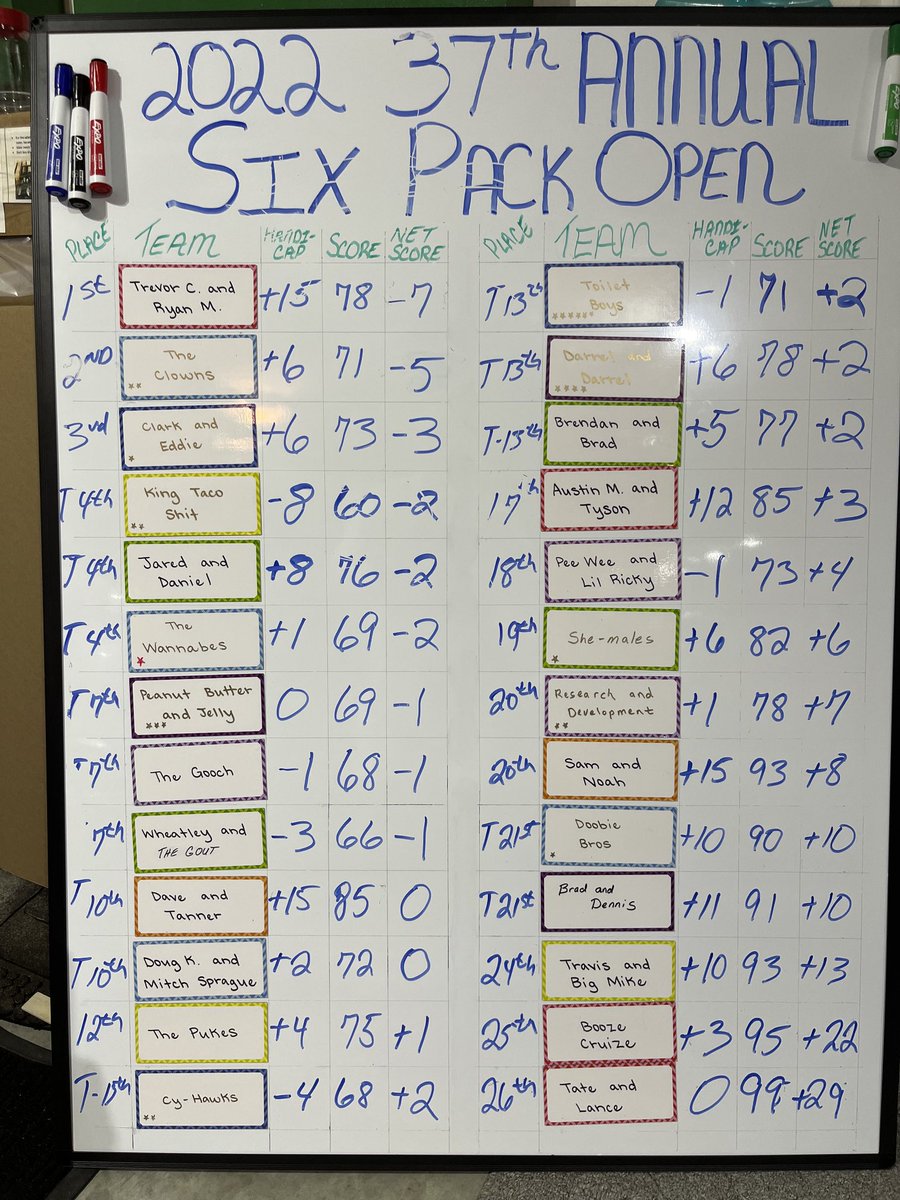 2022 37th ANNUAL
SIX PACK OPEN
PLACE TEAM HANDI-CAP SCORE NET SCORE
1st Trevor C. and Ryan M. +15 78 -7
2ND The Clowns +6 71 -5
3rd Clark and Eddie +6 73 -3
T 4th King Taco Shit -8 60 -2
T 4th Jared and Daniel +8 76 -2
T 4th The Wannabes +1 69 -2
T 7th Peanut Butter and Jelly 0 69 -1
T 7th The Gooch -1 68 -1
7th Wheatley and THE GOUT -3 66 -1
T 10th Dave and Tanner +15 85 0
T 10th Doug K. and Mitch Sprague +2 72 0
12th The Pukes +4 75 +1
T-13th Cy-Hawks -4 68 +2
PLACE TEAM HANDI-CAP SCORE NET SCORE
T 13th Toilet Boys -1 71 +2
T 13th Darrel and Darrel +6 78 +2
T-13th Brendan and Brad +5 77 +2
17th Austin M. and Tyson +12 85 +3
18th Pee Wee and Lil Ricky -1 73 +4
19th She-males +6 82 +6
20th Research and Development +1 78 +7
20th Sam and Noah +15 93 +8
T 21st Doobie Bros +10 90 +10
T 21st Brad and Dennis +11 91 +10
24th Travis and Big Mike +10 93 +13
25th Booze Cruize +3 95 +22
26th Tate and Lance 0 99 +29
EXPO
EXPO
EXPO
EXPO